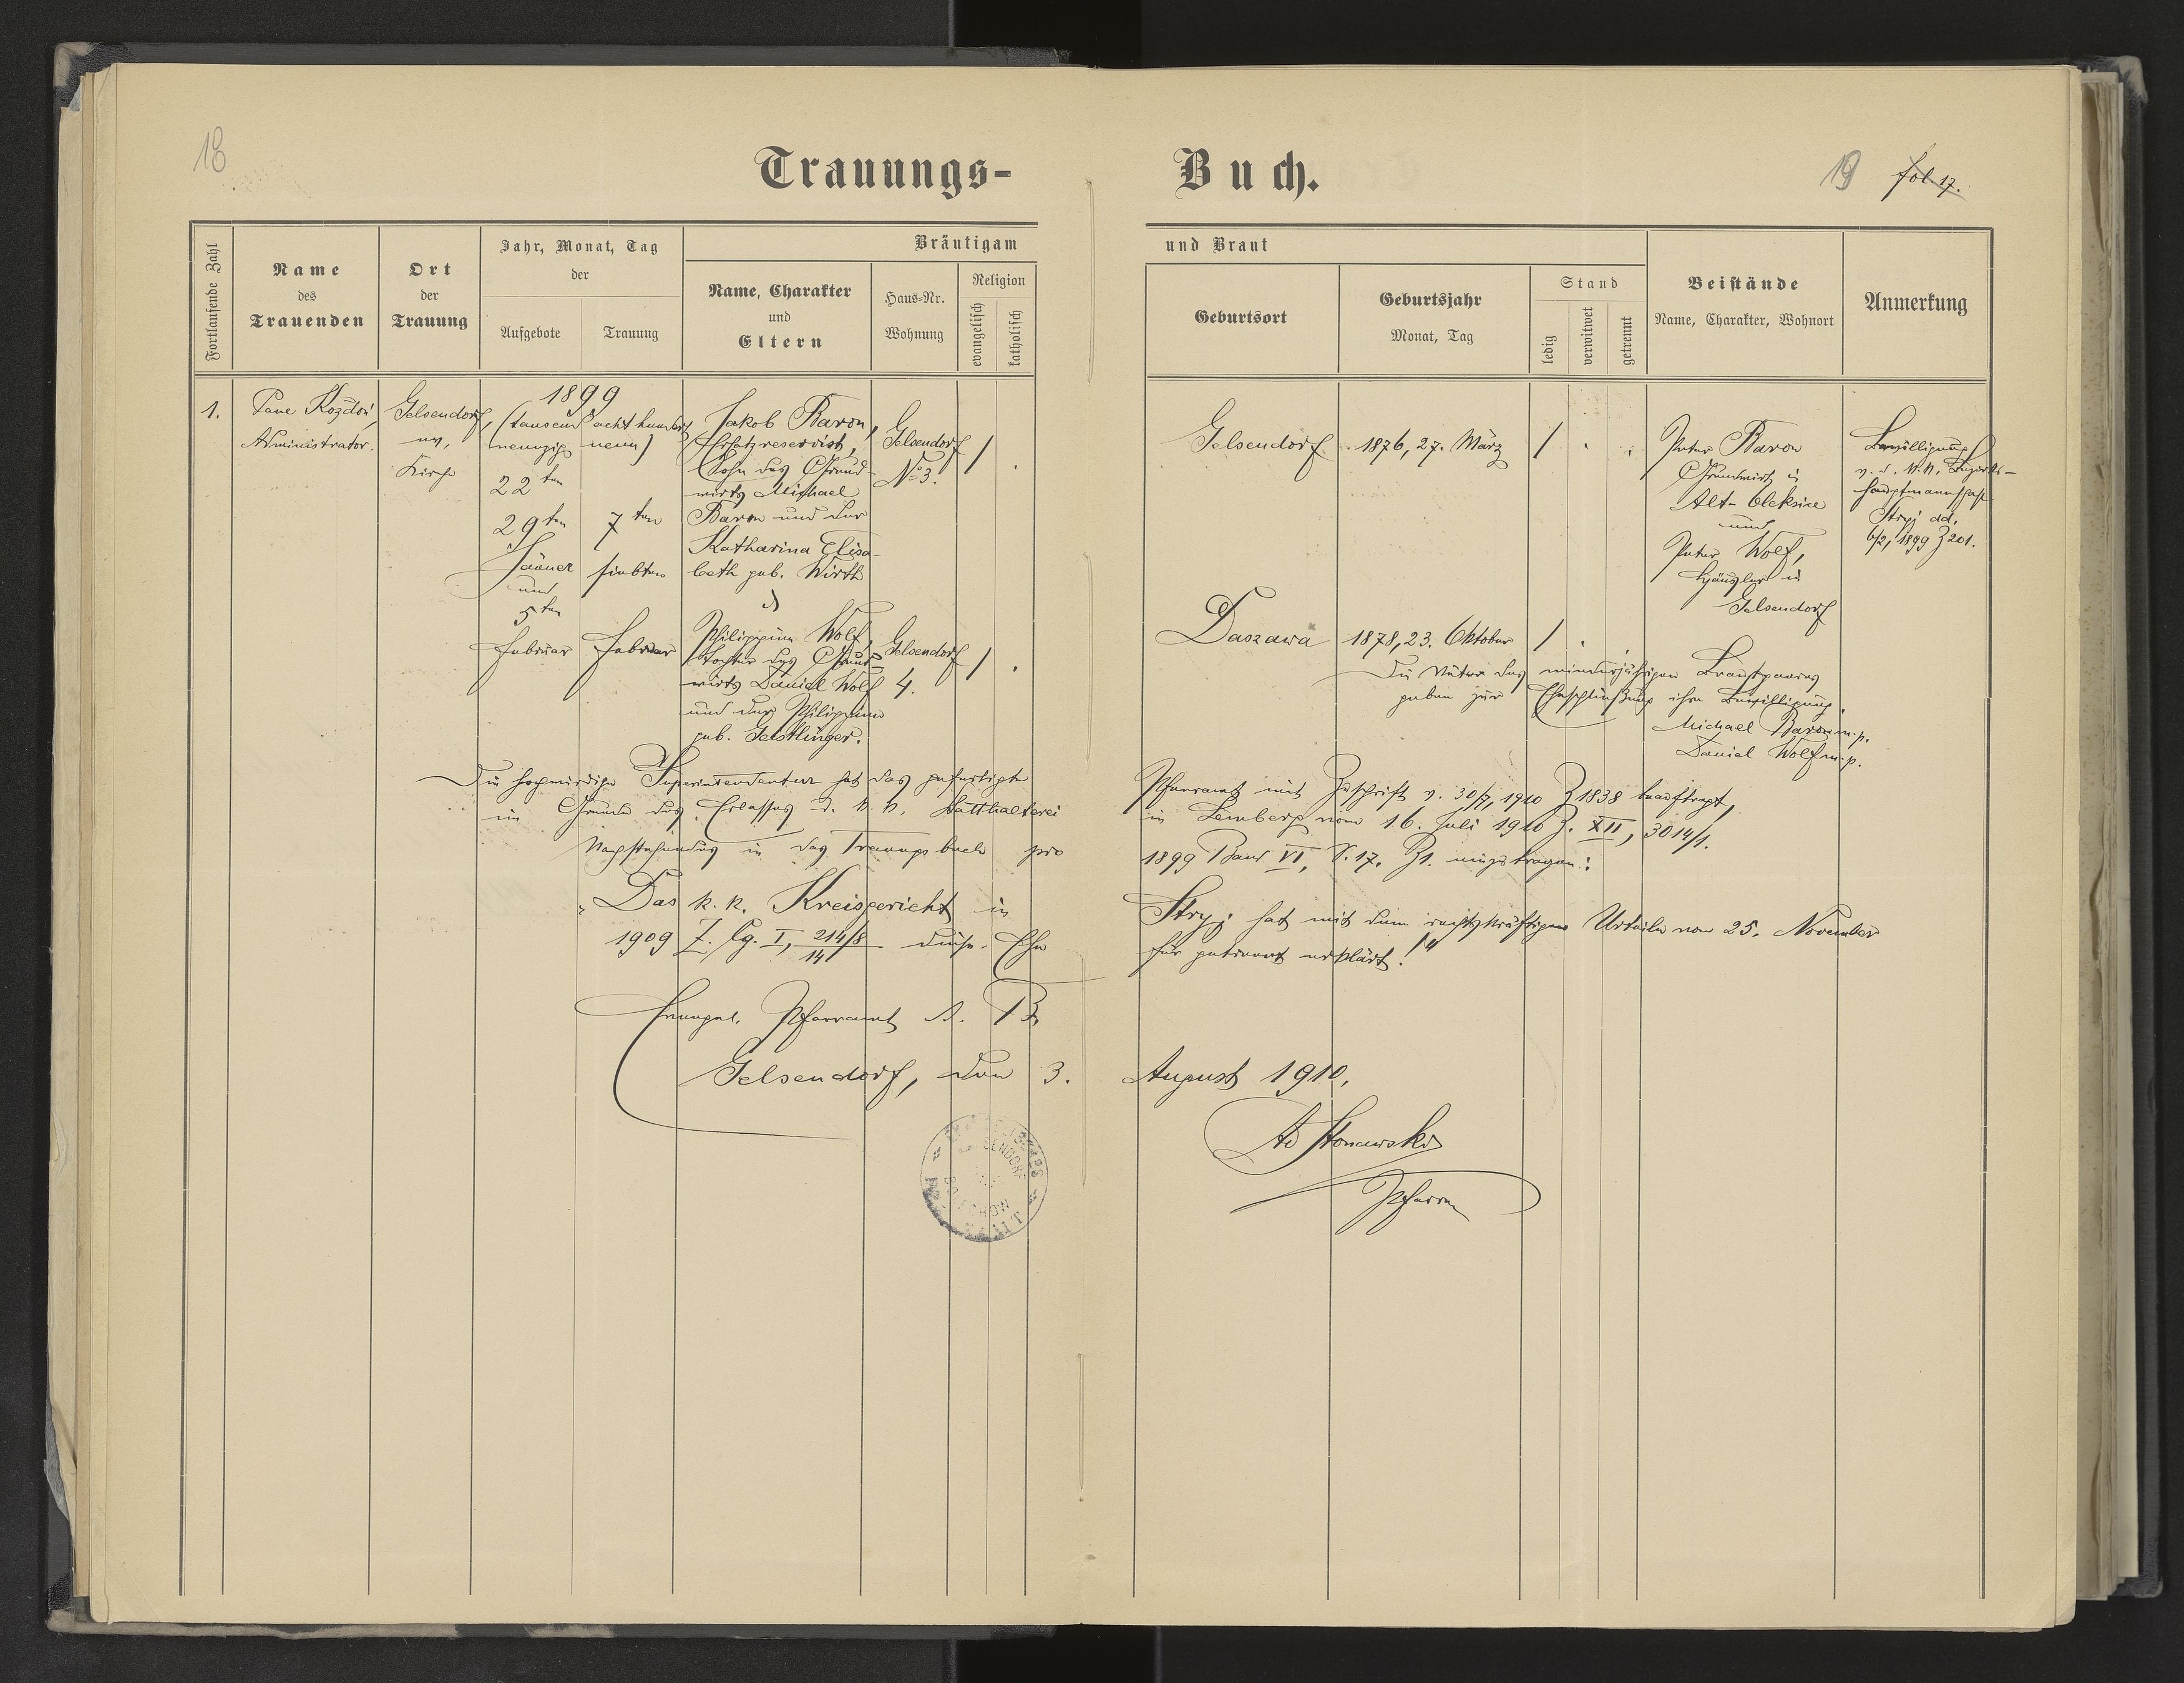 18
Trauungs-
Buch.
19 fol. 17.
Fortlaufende Zahl
Name
des
Trauenden
Ort
der
Trauung
Jahr, Monat, Tag
der
Aufgebote
Trauung
Bräutigam
Name, Charakter
und
Eltern
Haus-Nr.
Wohnung
Religion
evangelisch
katholisch
und Braut
Geburtsort
Geburtsjahr
Monat, Tag
Stand
ledig
verwitwet
getrennt
Beistände
Name, Charakter, Wohnort
Anmerkung
1.
Paul Kozdoń,
Administrator.
Gelsendorf,
ev.
Kirche
1899
(tausend acht hundert
neunzig neun)
22 ten
29 ten
Jänner
und
5 ten
Februar
7 ten
siebten
Februar
Jakob Baron,
Ersatzreservist,
Sohn des Grund-
wirts Michael
Baron und der
Katharina Elisa-
beth geb. Wirth
Gelsendorf
No 3.
/
Gelsendorf
1876, 27. März
/
Peter Baron
Grundwirt in
Alt-Oleksice
und
Peter Wolf,
Häusler in
Gelsendorf
Bewilligung
v. d. k. k. Bezirks-
hauptmannschaft
Stryj dd.
6/2, 1899 Z 201.
Philippine Wolf,
Tochter des Grund-
wirts Daniel Wolf
und der Philippine
geb. Geistlinger.
Gelsendorf
4.
/
Daszawa
1878, 23. Oktober
/
Die Väter des minderjährigen Brautpaares
geben zur Eheschließung ihre Bewilligung.
Michael Baron m. p.
Daniel Wolf m. p.
Die hochwürdige Superintendentur hat das gefertigte Pfarramt mit Zuschrift v. 30/7, 1910 Z 1838 beauftragt,
im Grunde des Erlasses d. k. k. Statthalterei in Lemberg vom 16. Juli 1910 Z. XII, 3014/1.
Nachstehendes in das Trauungsbuch pro 1899 Band VI, S. 17, Z 1. einzutragen:
"Das k. k. Kreisgericht in Stryj hat mit dem rechtskräftigen Urteile vom 25. November
1909 Z. Cg. I, 214/8 diese Ehe für getrennt erklärt!"
14
Evangel. Pfarramt A. B.
Gelsendorf, den 3. August 1910.
Ad Stonawski
Pfarrer